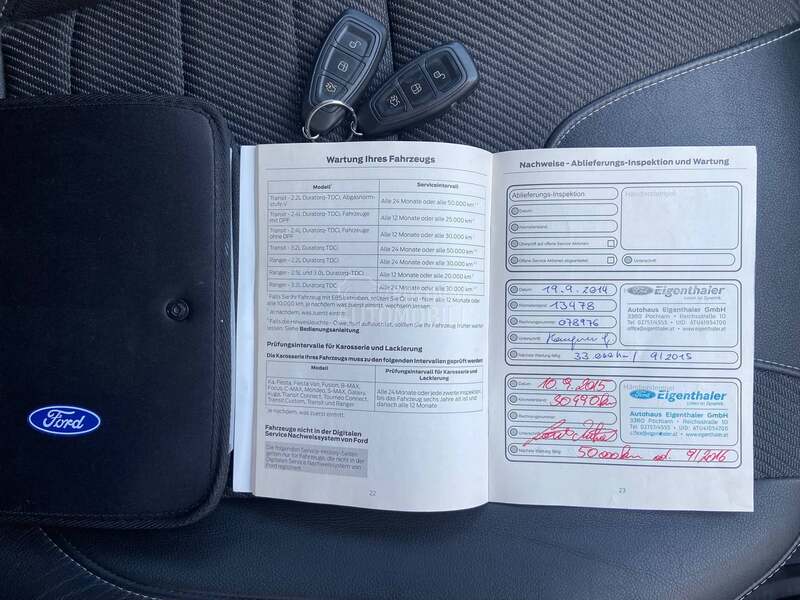 Ford
Wartung Ihres Fahrzeugs
Modell Serviceintervall
Transit - 2.2L Duratorq-TDCi, Abgasnorm-
stufe V Alle 24 Monate oder alle 50.000 km
Transit - 2.4L Duratorq-TDCi, Fahrzeuge
mit DPF Alle 12 Monate oder alle 25.000 km
Transit - 2.4L Duratorq-TDCi, Fahrzeuge
ohne DPF Alle 12 Monate oder alle 30.000 km
Transit - 3.2L Duratorq TDCi Alle 24 Monate oder alle 50.000 km
Ranger - 2.2L Duratorq TDCi Alle 24 Monate oder alle 30.000 km
Ranger - 2.5L und 3.0L Duratorq-TDCi Alle 12 Monate oder alle 20.000 km
Ranger - 3.2L Duratorq TDCi Alle 24 Monate oder alle 30.000 km
Falls Sie Ihr Fahrzeug mit E85 betreiben, sollten Sie Öl und Filter alle 12 Monate oder
alle 10.000 km, je nachdem was zuerst eintritt, wechseln lassen.
Je nachdem, was zuerst eintritt.
sollten Sie Ihr Fahrzeug früher warten
lassen. Siehe Bedienungsanleitung
Prüfungsintervalle für Karosserie und Lackierung
Die Karosserie Ihres Fahrzeugs muss zu den folgenden Intervallen geprüft werden:
Modell Prüfungsintervall für Karosserie und
Lackierung
Ka, Fiesta, Fiesta Van, Fusion, B-MAX,
Focus, C-MAX, Mondeo, S-MAX, Galaxy,
Kuga, Transit Connect, Tourneo Connect,
Transit Custom, Transit und Ranger.
Alle 24 Monate oder jede zweite Inspektion,
bis das Fahrzeug sechs Jahre alt ist und
danach alle 12 Monate
Je nachdem, was zuerst eintritt.
Fahrzeuge nicht in der Digitalen
Service Nachweissystem von Ford
Die folgenden Service-History-Seiten
gelten nur für Fahrzeuge, die nicht im
Digitalen Service Nachweissystem von
Ford registriert
22
Nachweise - Ablieferungs-Inspektion und Wartung
Ablieferungs-Inspektion:
Händlerstempel
Datum
Kilometerstand
Überprüft auf offene Service Aktionen
Offene Service Aktionen abgearbeitet
Unterschrift
Datum 19.9.2014
Kilometerstand 13478
Rechnungsnummer 078976
Unterschrift
Nächste Wartung fällig 33.000km / 9/2015
Ford Eigenthaler
Autohaus Eigenthaler GmbH
3380 Pöchlarn · Reichsstraße 10
office@eigenthaler.at www.eigenthaler.at
Datum 10.9.2015
Kilometerstand 30490k
Rechnungsnummer
Nächste Wartung fällig 50000km od. 9/2016
Händlerstempel
Ford Eigenthaler
Autohaus Eigenthaler GmbH
3380 Pöchlarn · Reichsstraße 10
office@eigenthaler.at · www.eigenthaler.at
23